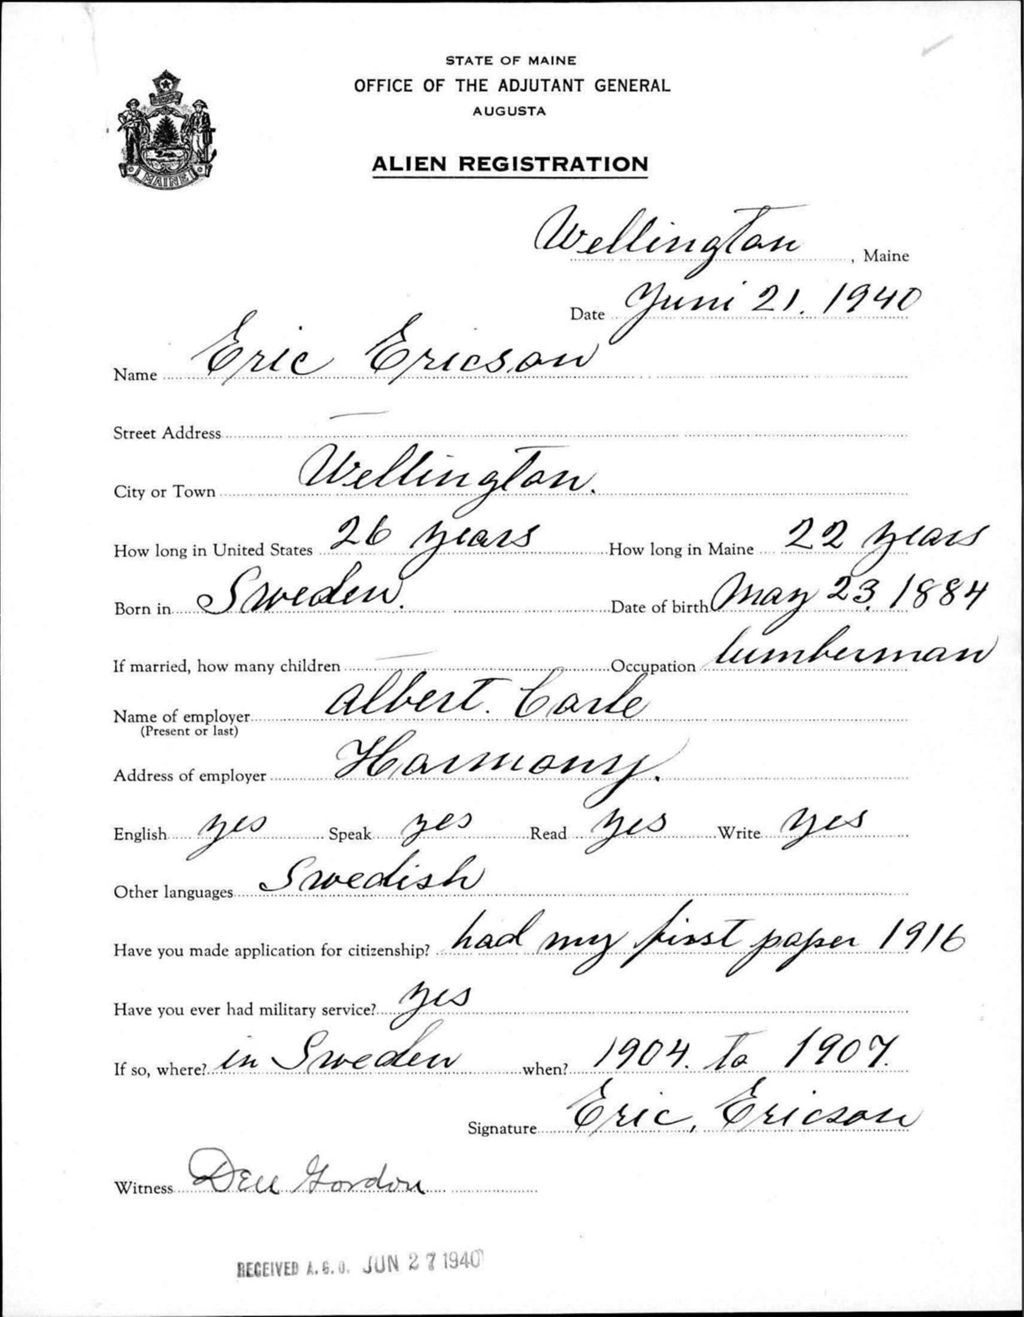 STATE OF MAINE
OFFICE OF THE ADJUTANT GENERAL
AUGUSTA
ALIEN REGISTRATION
MAINE
Wellington, Maine
Date Juni 21. 1940
Name Eric Ericson
Street Address —
City or Town Wellington.
How long in United States 26 years How long in Maine 22 years
Born in Sweden. Date of birth May 23. 1884
If married, how many children — Occupation lumberman
Name of employer Albert. Carle
(Present or last)
Address of employer Harmony.
English yes Speak yes Read yes Write yes
Other languages Swedish
Have you made application for citizenship? had my first paper 1916
Have you ever had military service? yes
If so, where? in Sweden when? 1904. to 1907.
Signature Eric, Ericson
Witness Gordon
RECEIVED A.G.O. JUN 27 1940